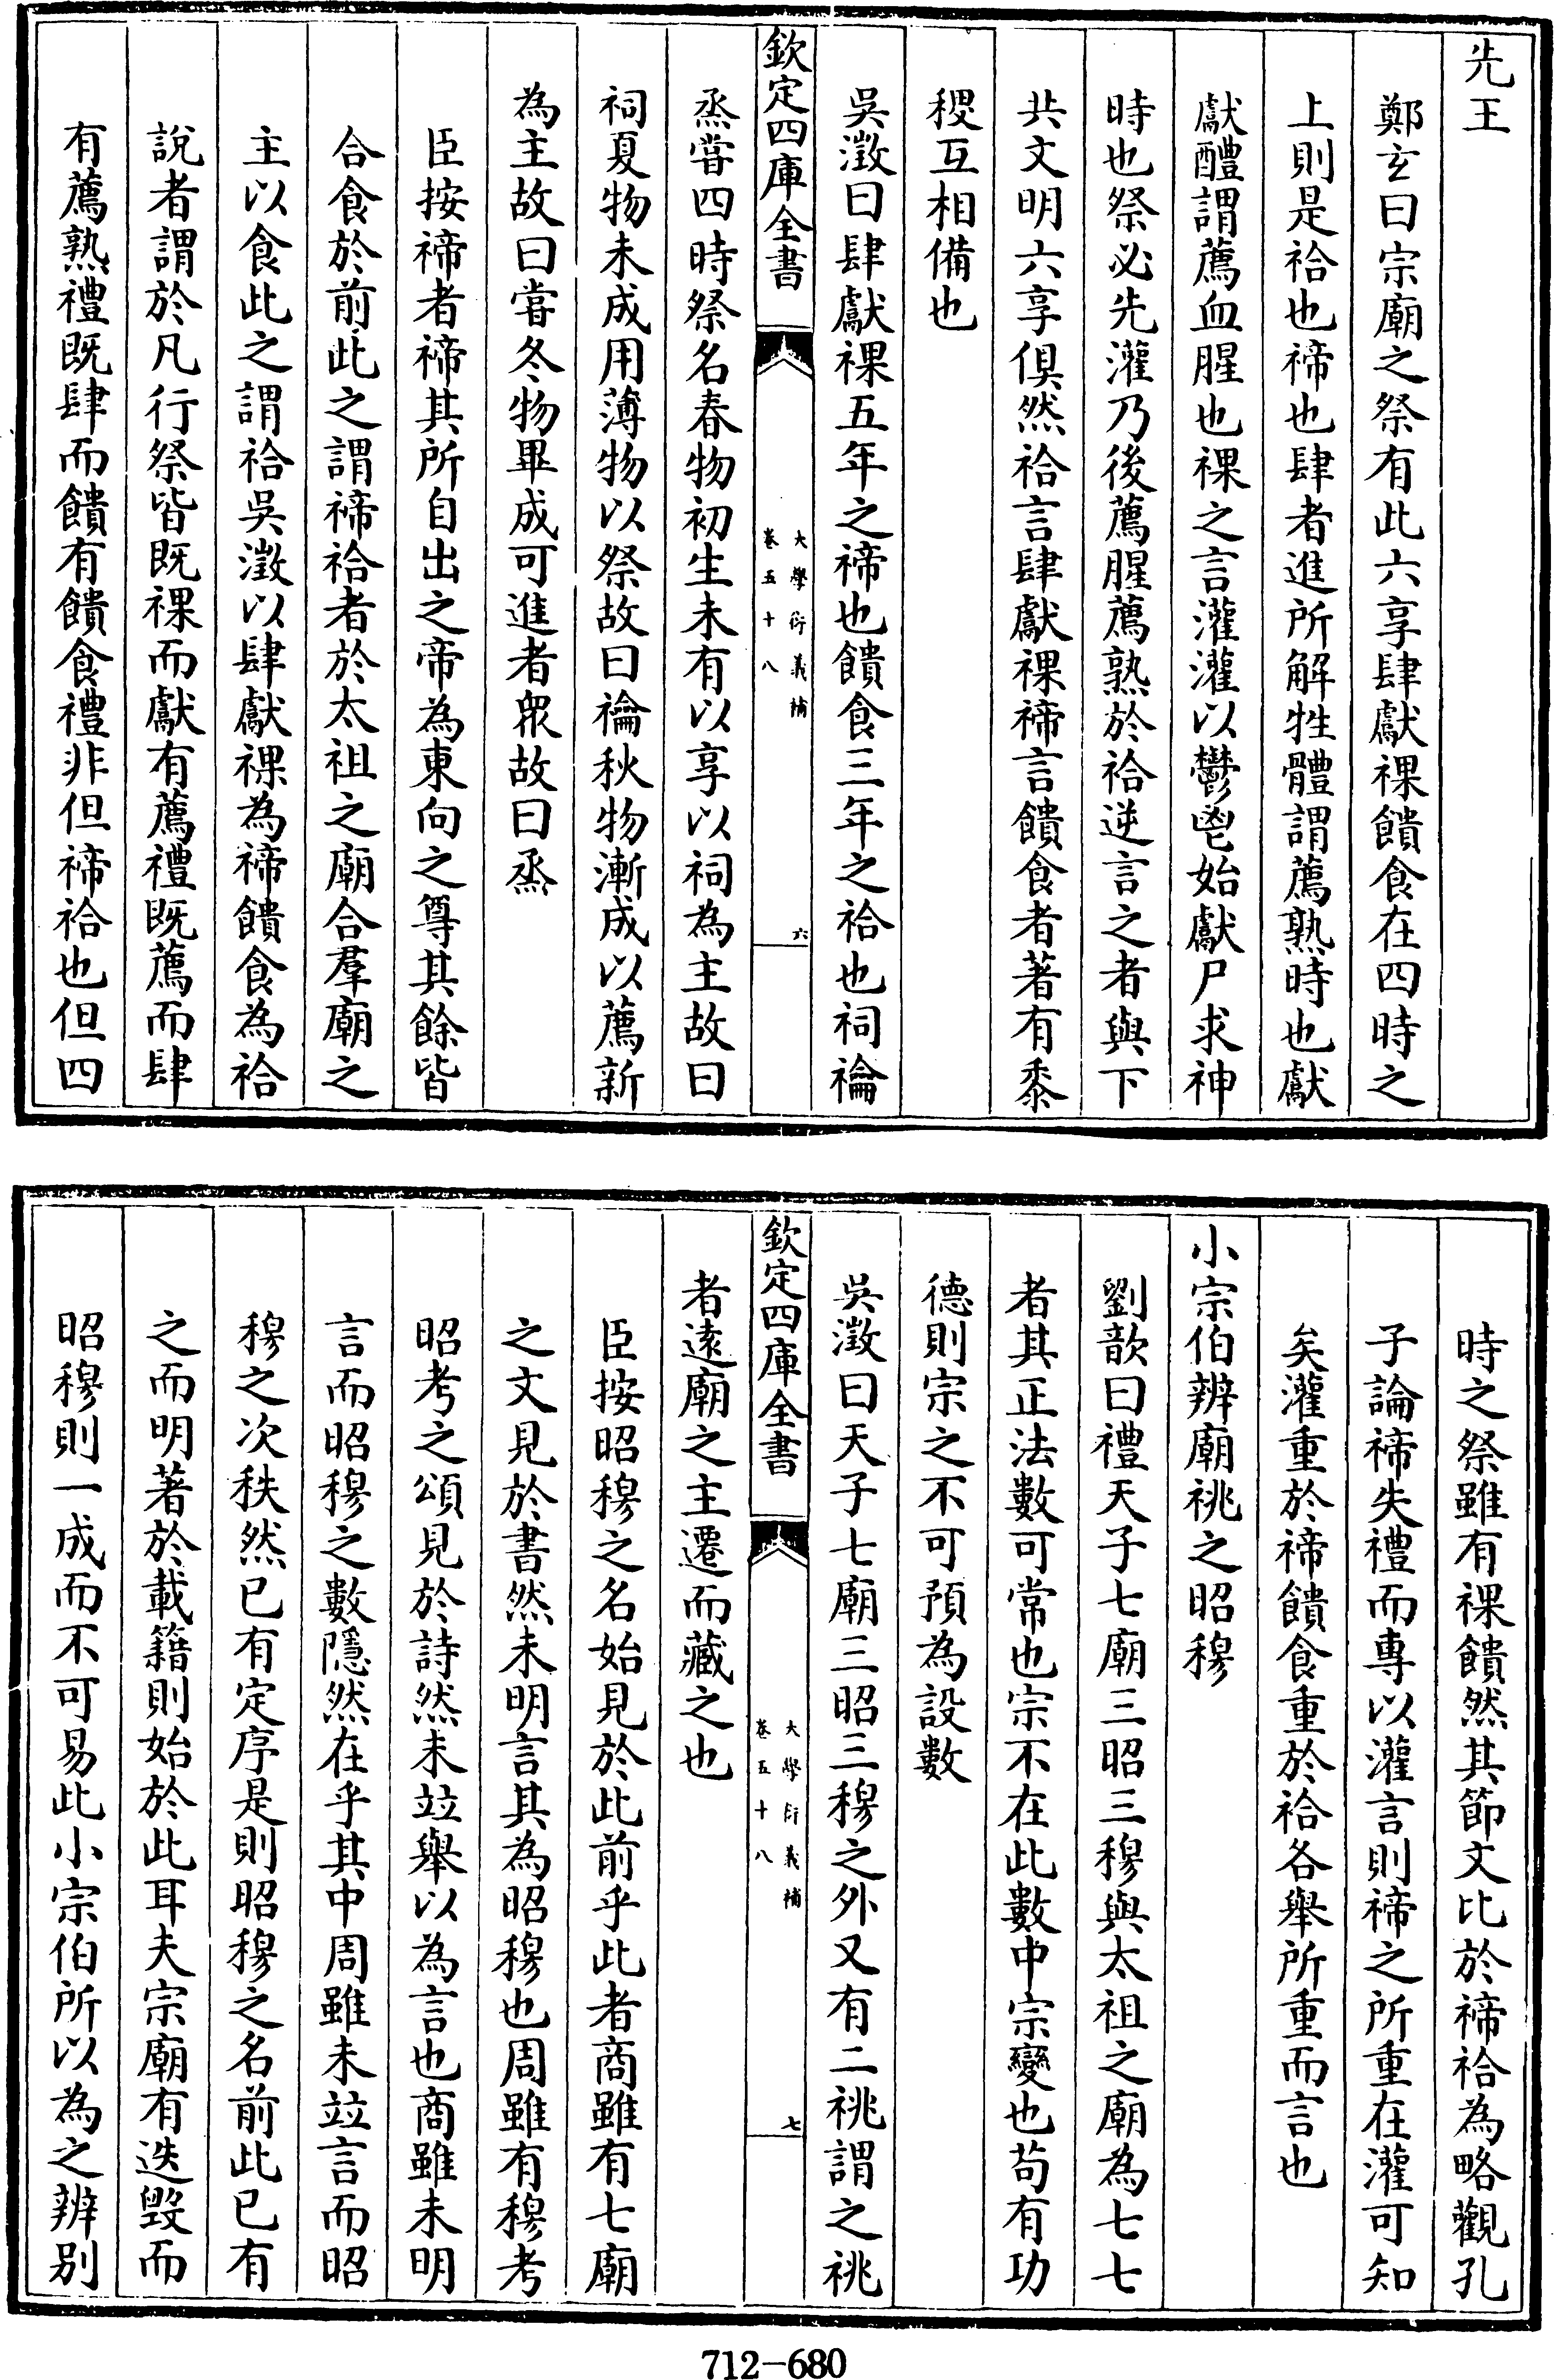 先王
鄭玄曰宗廟之祭有此六享肆獻祼饋食在四時之
上則是祫也禘也肆者進所解牲體謂薦熟時也獻
獻醴謂薦血腥也祼之言灌灌以鬱鬯始獻尸求神
時也祭必先灌乃後薦腥薦熟於祫逆言之者與下
共文明六享俱然祫言肆獻祼禘言饋食者著有黍
稷互相備也
吳澂曰肆獻祼五年之禘也饋食三年之祫也祠禴
欽定四庫全書
大學衍義補
卷五十八
六
烝嘗四時祭名春物初生未有以享以祠為主故曰
祠夏物未成用薄物以祭故曰禴秋物漸成以薦新
為主故曰嘗冬物畢成可進者衆故曰烝
臣按禘者禘其所自出之帝為東向之尊其餘皆
合食於前此之謂禘祫者於太祖之廟合羣廟之
主以食此之謂祫吳澂以肆獻祼為禘饋食為祫
說者謂於凡行祭皆既祼而獻有薦禮既薦而肆
有薦熟禮既肆而饋有饋食禮非但禘祫也但四
時之祭雖有祼饋然其節文比於禘祫為略觀孔
子論禘失禮而專以灌言則禘之所重在灌可知
矣灌重於禘饋食重於祫各舉所重而言也
小宗伯辨廟祧之昭穆
劉歆曰禮天子七廟三昭三穆與太祖之廟為七七
者其正法數可常也宗不在此數中宗變也苟有功
德則宗之不可預為設數
吳澂曰天子七廟三昭三穆之外又有二祧謂之祧
欽定四庫全書
大學衍義補
卷五十八
七
者遠廟之主遷而藏之也
臣按昭穆之名始見於此前乎此者商雖有七廟
之文見於書然未明言其為昭穆也周雖有穆考
昭考之頌見於詩然未竝舉以為言也商雖未明
言而昭穆之數隱然在乎其中周雖未竝言而昭
穆之次秩然已有定序是則昭穆之名前此已有
之而明著於載籍則始於此耳夫宗廟有迭毀而
昭穆則一成而不可易此小宗伯所以為之辨別
712-680